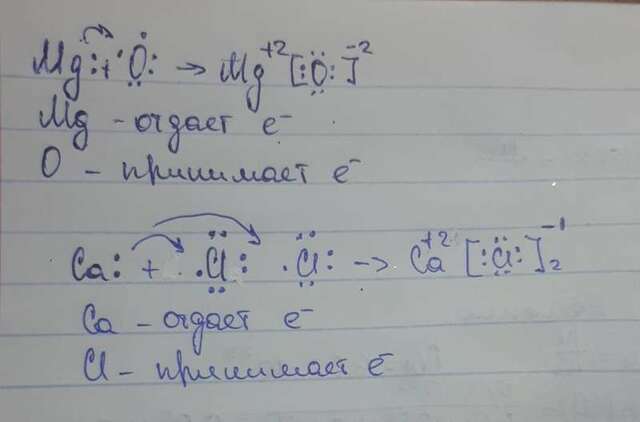 Mg: + ·Ö: → Mg⁺² [:Ö:]⁻²
Mg - отдает e⁻
O - принимает e⁻
Ca: + ·Cl: ·Cl: → Ca⁺² [:Cl:]₂⁻¹
Ca - отдает e⁻
Cl - принимает e⁻